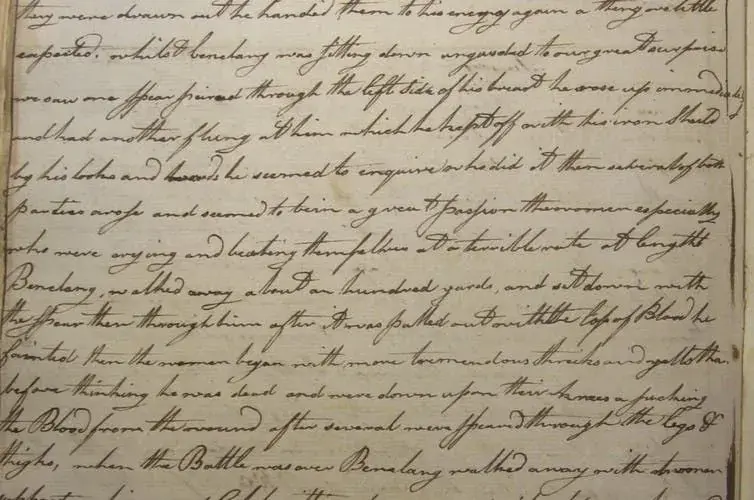 they were drawn out he handed them to his enemy again a thing we little
expected. whilst Benelang was sitting down unguarded to our great surprise
we saw one Spear pierced through the left side of his breast he arose up immediately
and had another flung at him which he kept off with his own Sheild
by his looks and he seemed to enquire who did it then selveral of both
parties arose and seemed to be in a great passion the women especially
who were crying and beating themselves at a terrible rate at length
Benelang, walked away about an hundred yards, and set down with
the Spear then through him after it was pulled out with the loss of Blood he
fainted then the women began with more tremendous shrieks and yells than
before thinking he was dead and were down upon their knees a sucking
the Blood from the wound after several were Speared through the legs &
thighs, when the Battle was over Benelang walked away with a woman
him